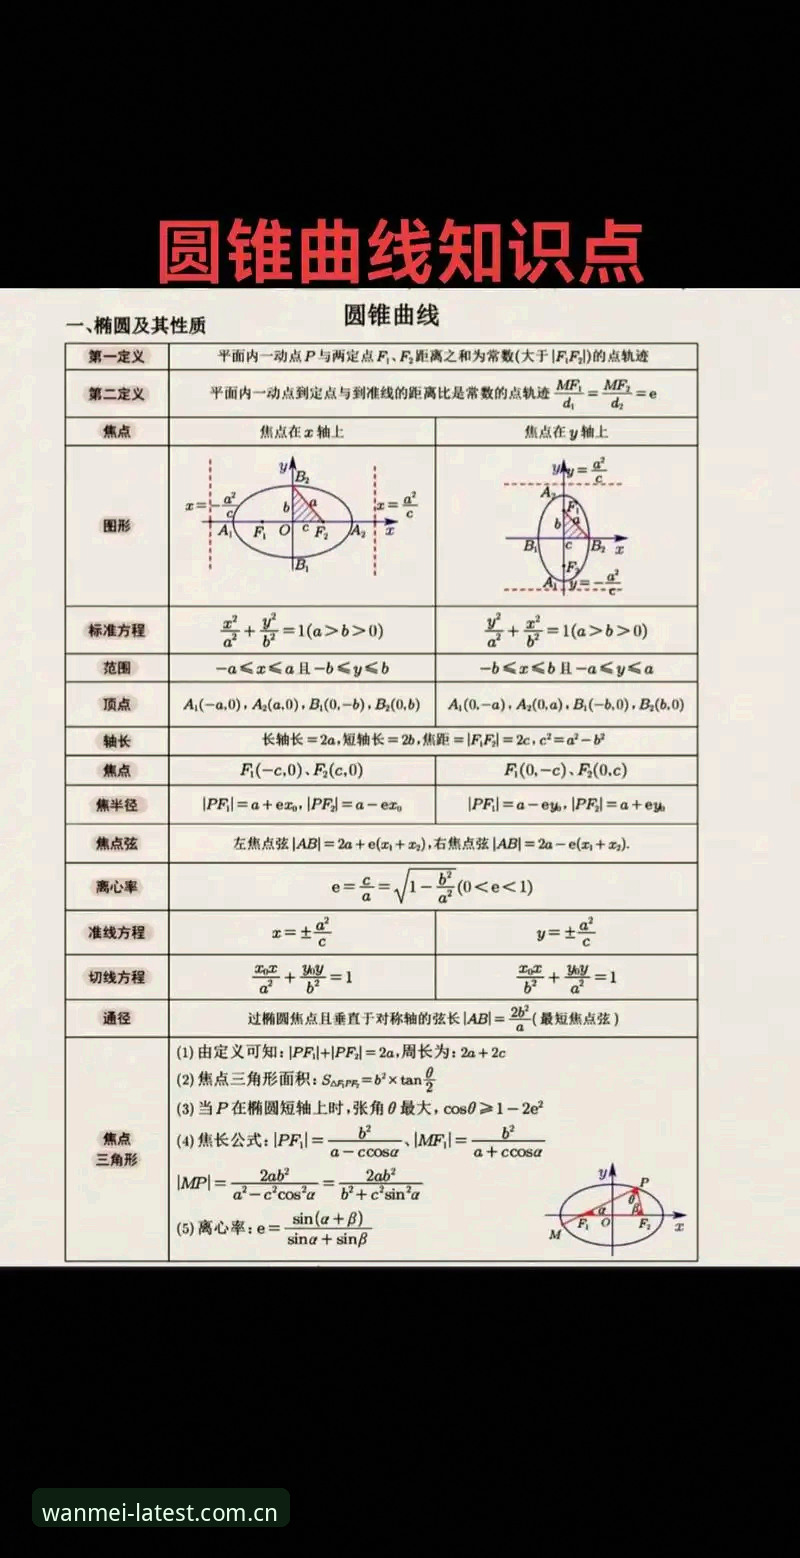 圆锥曲线知识点
圆锥曲线
一、椭圆及其性质
第一定义 平面内一动点 P 与两定点 F₁、F₂ 距离之和为常数(大于|F₁F₂|)的点轨迹
第二定义 平面内一动点到定点与到准线的距离比是常数的点轨迹 MF₁/d₁ = MF₂/d₂ = e
焦点 焦点在 x 轴上 焦点在 y 轴上
图形
y B₂ x=-a²/c b a x=a²/c A₁ F₁ O c F₂ A₂ x B₁
y y=a²/c A₂ F₁ b a B₁ c B₂ x F₂ A₁ y=-a²/c
标准方程 x²/a² + y²/b² = 1(a>b>0) y²/a² + x²/b² = 1(a>b>0)
范围 -a⩽x⩽a 且 -b⩽y⩽b -b⩽x⩽b 且 -a⩽y⩽a
顶点 A₁(-a,0), A₂(a,0), B₁(0,-b), B₂(0,b) A₁(0,-a), A₂(0,a), B₁(-b,0), B₂(b,0)
轴长 长轴长=2a,短轴长=2b,焦距=|F₁F₂|=2c, c²=a²-b²
焦点 F₁(-c,0)、F₂(c,0) F₁(0,-c)、F₂(0,c)
焦半径 |PF₁|=a+ex₀, |PF₂|=a-ex₀ |PF₁|=a-ey₀, |PF₂|=a+ey₀
焦点弦 左焦点弦 |AB|=2a+e(x₁+x₂),右焦点弦 |AB|=2a-e(x₁+x₂).
离心率 e=c/a=√(1-b²/a²)(0<e<1)
准线方程 x=±a²/c y=±a²/c
切线方程 x₀x/a² + y₀y/b² = 1 x₀x/b² + y₀y/a² = 1
通径 过椭圆焦点且垂直于对称轴的弦长|AB|=2b²/a(最短焦点弦)
焦点
三角形
(1) 由定义可知: |PF₁|+|PF₂|=2a,周长为: 2a+2c
(2) 焦点三角形面积: S△F₁PF₂=b²×tanθ/2
(3) 当 P 在椭圆短轴上时,张角 θ 最大, cosθ⩾1-2e²
(4) 焦长公式: |PF₁|=b²/(a-ccosα)、|MF₁|=b²/(a+ccosα)
|MP|=2ab²/(a²-c²cos²α)=2ab²/(b²+c²sin²α)
(5) 离心率: e=sin(α+β)/(sinα+sinβ)
y P θ α β F₁ O F₂ x M
wanmei-latest.com.cn